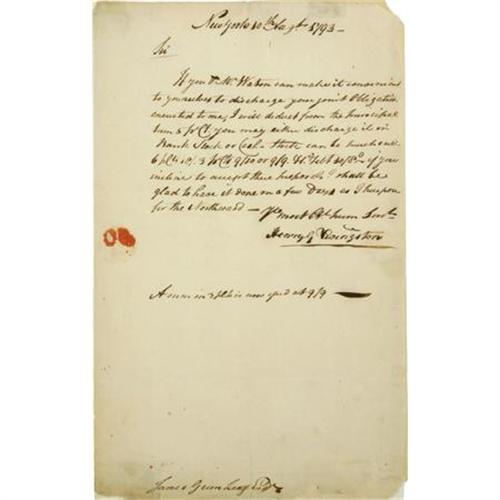 New York 10th Augt 1793 —
Sir
If you & Mr Watson can make it convenient
to yourselves to discharge your joint Obligation
executed to me, I will deduct from the principal
sum 5 pr Ct you may either discharge it in
Bank Stock or Cash Stock can be purchased
6 pCts 3 pCts 9/10 or 9/9 if you
incline to accept these proposals I shall be
glad to have it done in a few Days as I
for the Northward — Yr most Obt hum Servt
Henry G Livingston
A sum in 3 pCts is now at 9/9 —
James Greenleaf Esqr